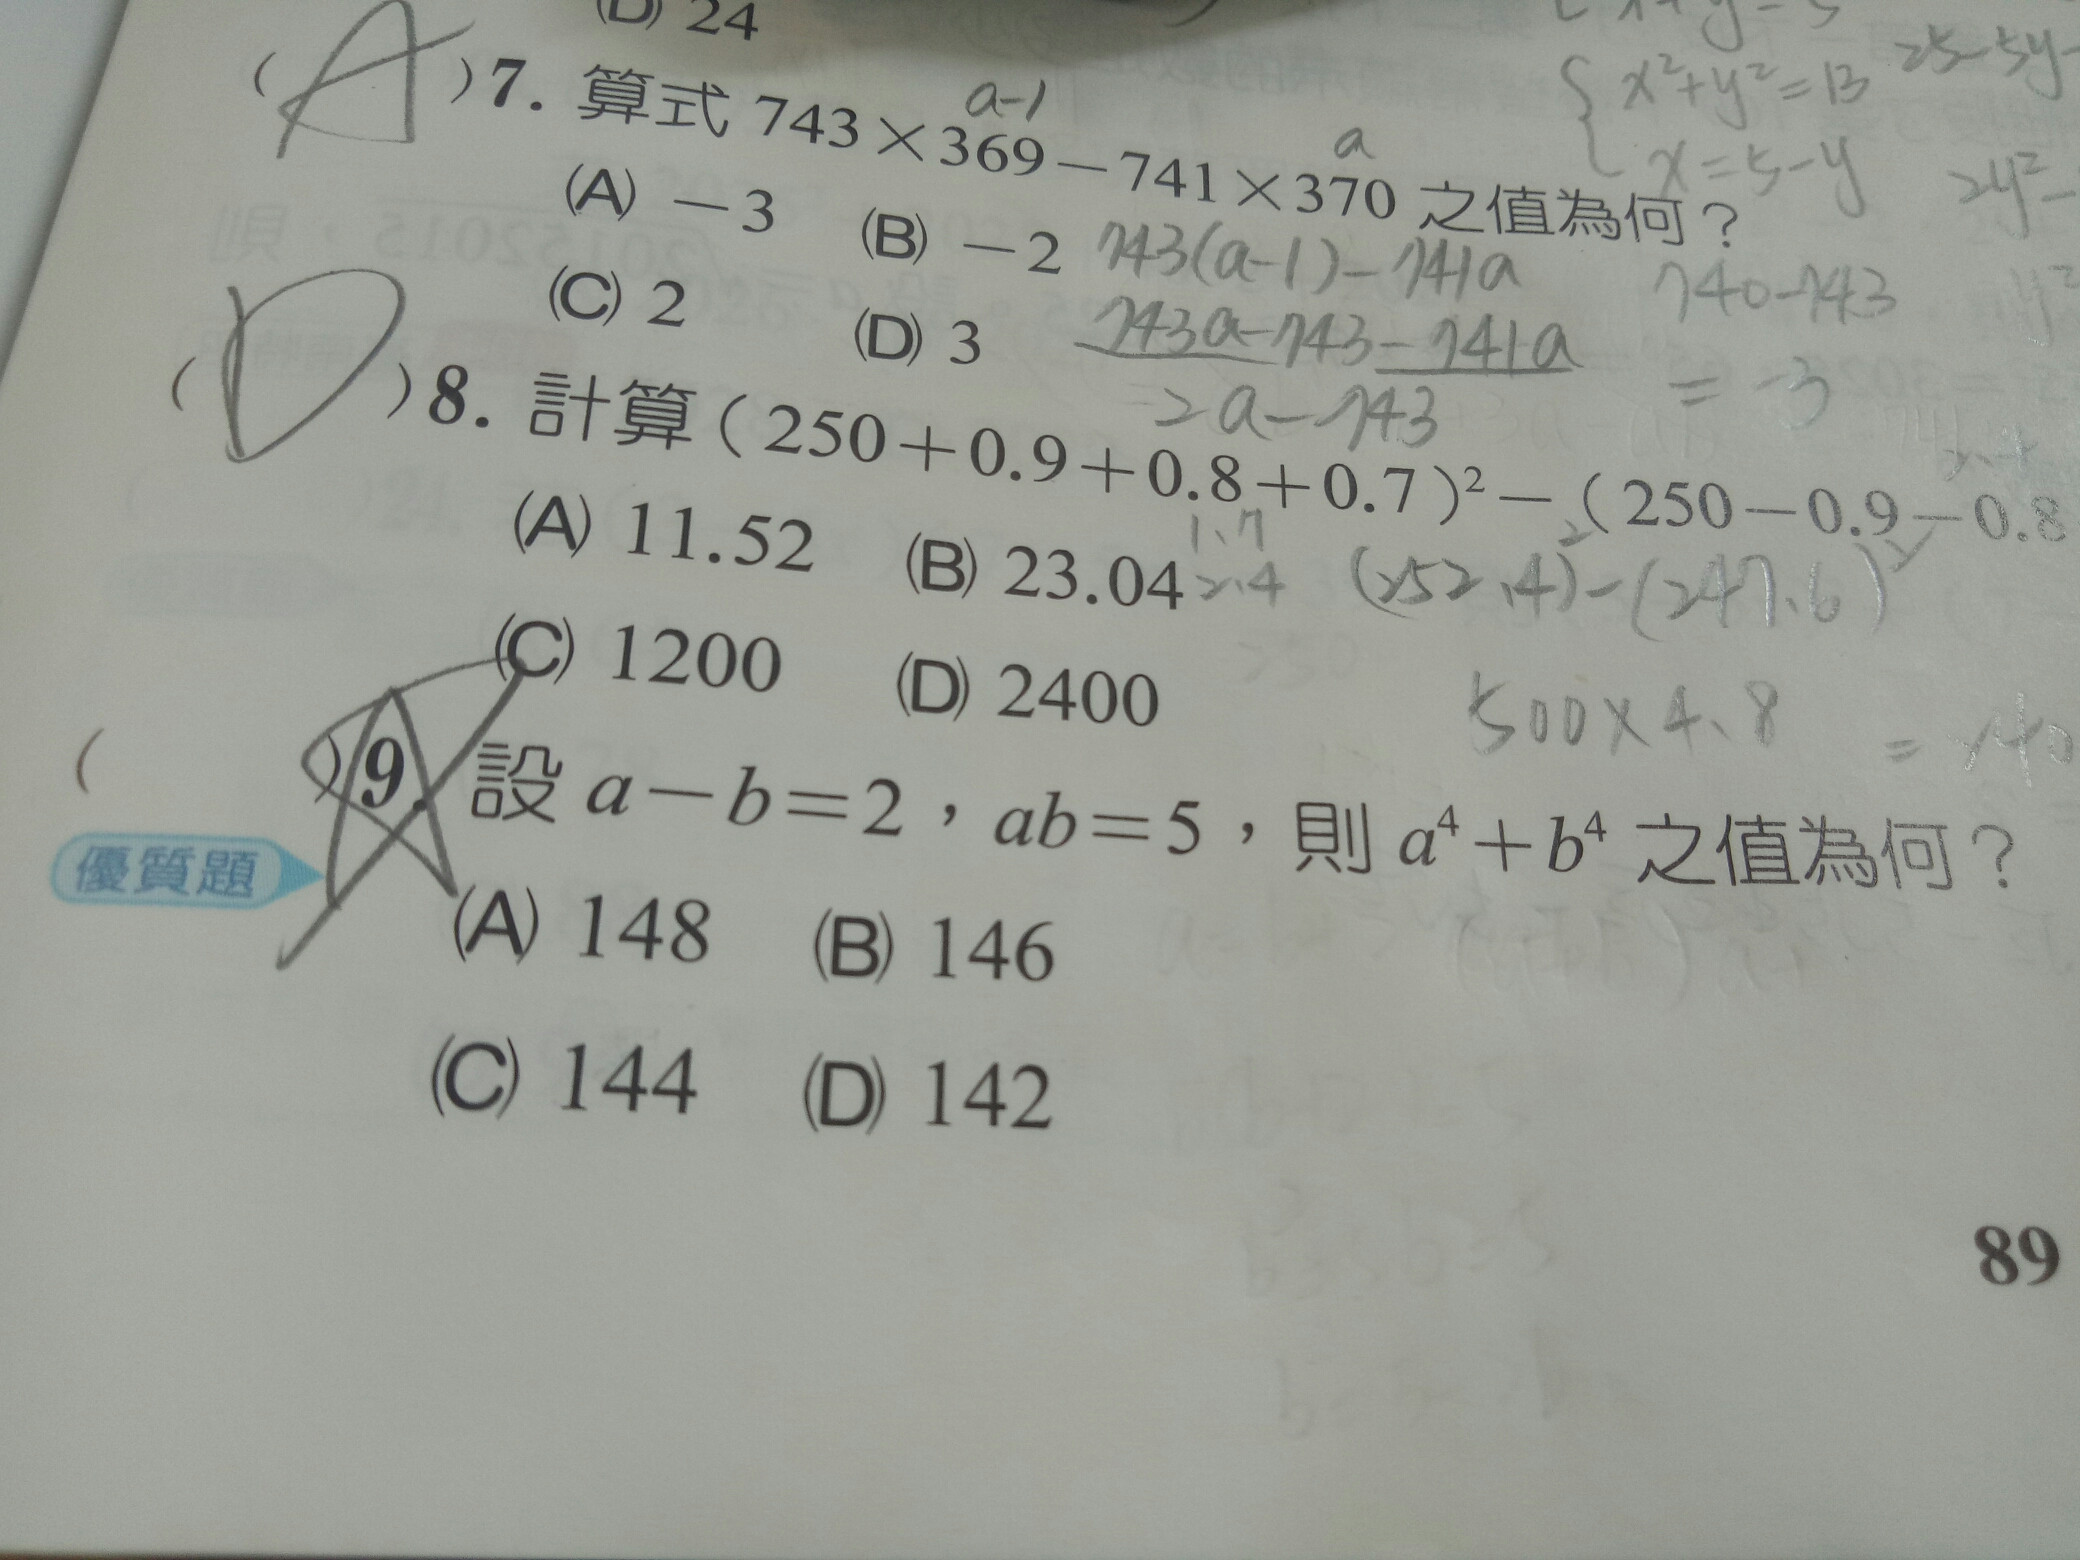 (D) 24
(A)7. 算式 743×369－741×370 之值為何？
a-1
a
(A) －3 (B) －2
(C) 2 (D) 3
743(a-1)-741a
743a-743-741a
2a-743
740-743
=-3
x²+y²=13
x=5-y
(D)8. 計算(250+0.9+0.8+0.7)²－(250－0.9－0.8
(A) 11.52 (B) 23.04
1.7
2.4
(252.4)²-(247.6)²
(C) 1200 (D) 2400
500×4.8
( )9. 設 a－b＝2，ab＝5，則 a⁴＋b⁴ 之值為何？
優質題
(A) 148 (B) 146
(C) 144 (D) 142
89